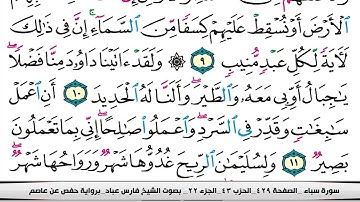 ٱلْأَرْضَ أَوْ نُسْقِطْ عَلَيْهِمْ كِسَفًا مِّنَ ٱلسَّمَآءِ ۚ إِنَّ فِى ذَٰلِكَ
لَءَايَةً لِّكُلِّ عَبْدٍ مُّنِيبٍ ٩ ۞ وَلَقَدْ ءَاتَيْنَا دَاوُۥدَ مِنَّا فَضْلًا ۖ
يَٰجِبَالُ أَوِّبِى مَعَهُۥ وَٱلطَّيْرَ ۖ وَأَلَنَّا لَهُ ٱلْحَدِيدَ ١٠ أَنِ ٱعْمَلْ
سَٰبِغَٰتٍ وَقَدِّرْ فِى ٱلسَّرْدِ ۖ وَٱعْمَلُوا۟ صَٰلِحًا ۖ إِنِّى بِمَا تَعْمَلُونَ
بَصِيرٌ ١١ وَلِسُلَيْمَٰنَ ٱلرِّيحَ غُدُوُّهَا شَهْرٌ وَرَوَاحُهَا شَهْرٌ ۖ
سورة سباء _ الصفحة ٤٢٩_ الحزب ٤٣_ الجزء ٢٢_ بصوت الشيخ فارس عباد_ برواية حفص عن عاصم